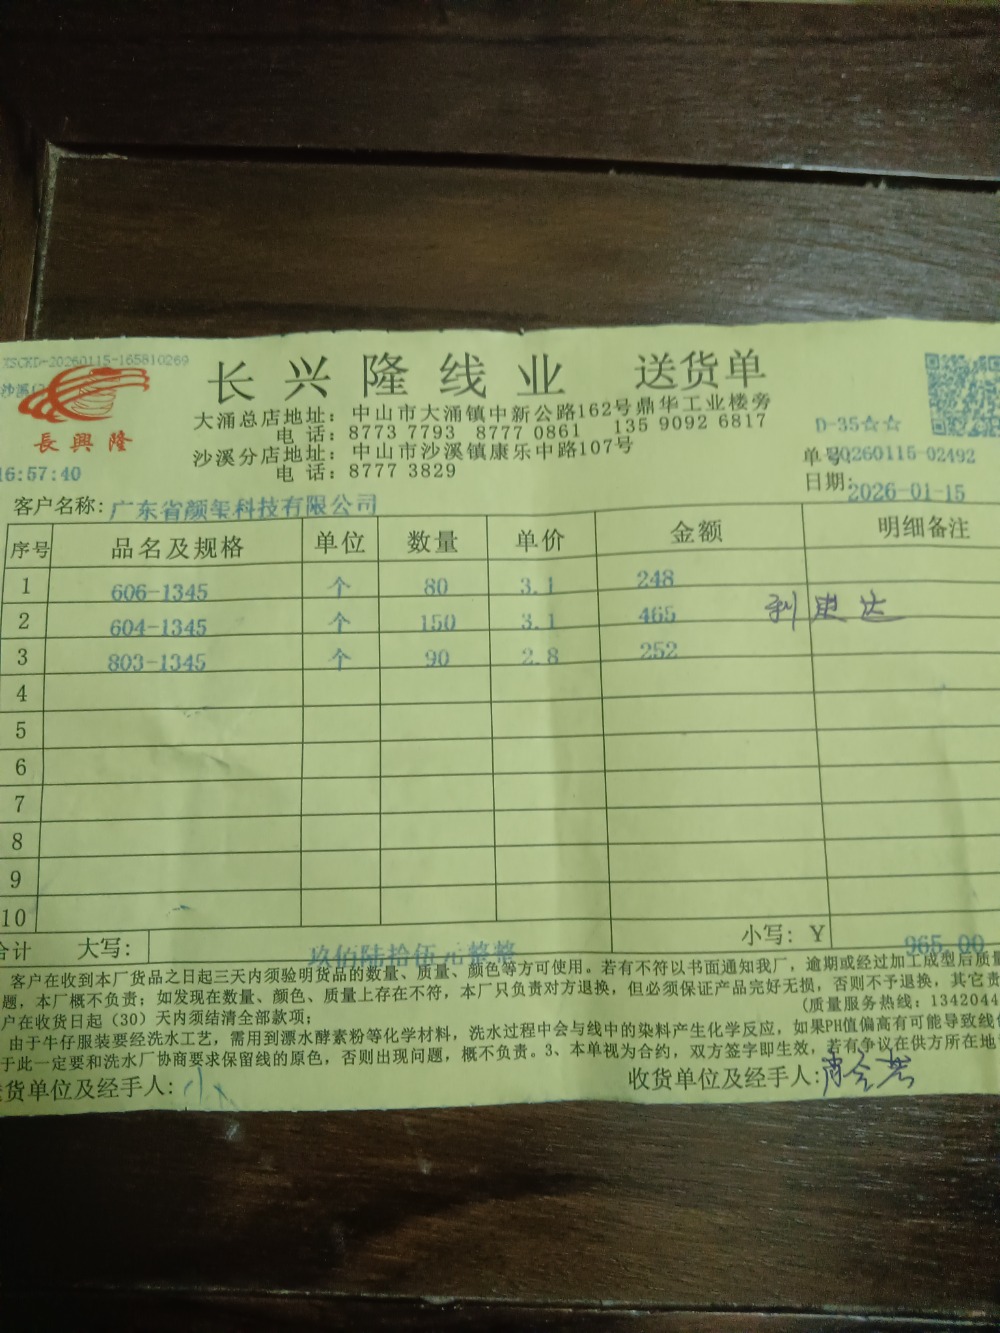 XSCKD-20260115-165810269
长兴隆线业 送货单
沙溪
長興隆
大涌总店地址：中山市大涌镇中新公路162号鼎华工业楼旁
电话：8773 7793 8777 0861 135 9092 6817
沙溪分店地址：中山市沙溪镇康乐中路107号
电话：8777 3829
D-35☆☆
16:57:40
单号:20260115-02492
日期:2026-01-15
客户名称：广东省颜玺科技有限公司
序号 品名及规格 单位 数量 单价 金额 明细备注
1 606-1345 个 80 3.1 248
2 604-1345 个 150 3.1 465 利思达
3 803-1345 个 90 2.8 252
4
5
6
7
8
9
10
合计 大写：玖佰陆拾伍元整整 小写：Y 965.00
客户在收到本厂货品之日起三天内须验明货品的数量、质量、颜色等方可使用。若有不符以书面通知我厂，逾期或经过加工成型后质量
题，本厂概不负责；如发现在数量、颜色、质量上存在不符，本厂只负责对方退换，但必须保证产品完好无损，否则不予退换，其它责
(质量服务热线：1342044
户在收货日起（30）天内须结清全部款项；
由于牛仔服装要经洗水工艺，需用到漂水酵素粉等化学材料，洗水过程中会与线中的染料产生化学反应，如果PH值偏高有可能导致线
于此一定要和洗水厂协商要求保留线的原色，否则出现问题，概不负责。3、本单视为合约，双方签字即生效，若有争议在供方所在地
货单位及经手人：
收货单位及经手人：